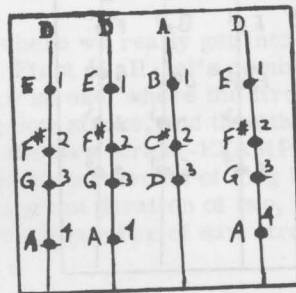 D D A D
E E 1 B 1
F# 2 F# 2 C# 2 F# 2
G 3 G 3 D 3 G 3
A 4 A 4 A 4